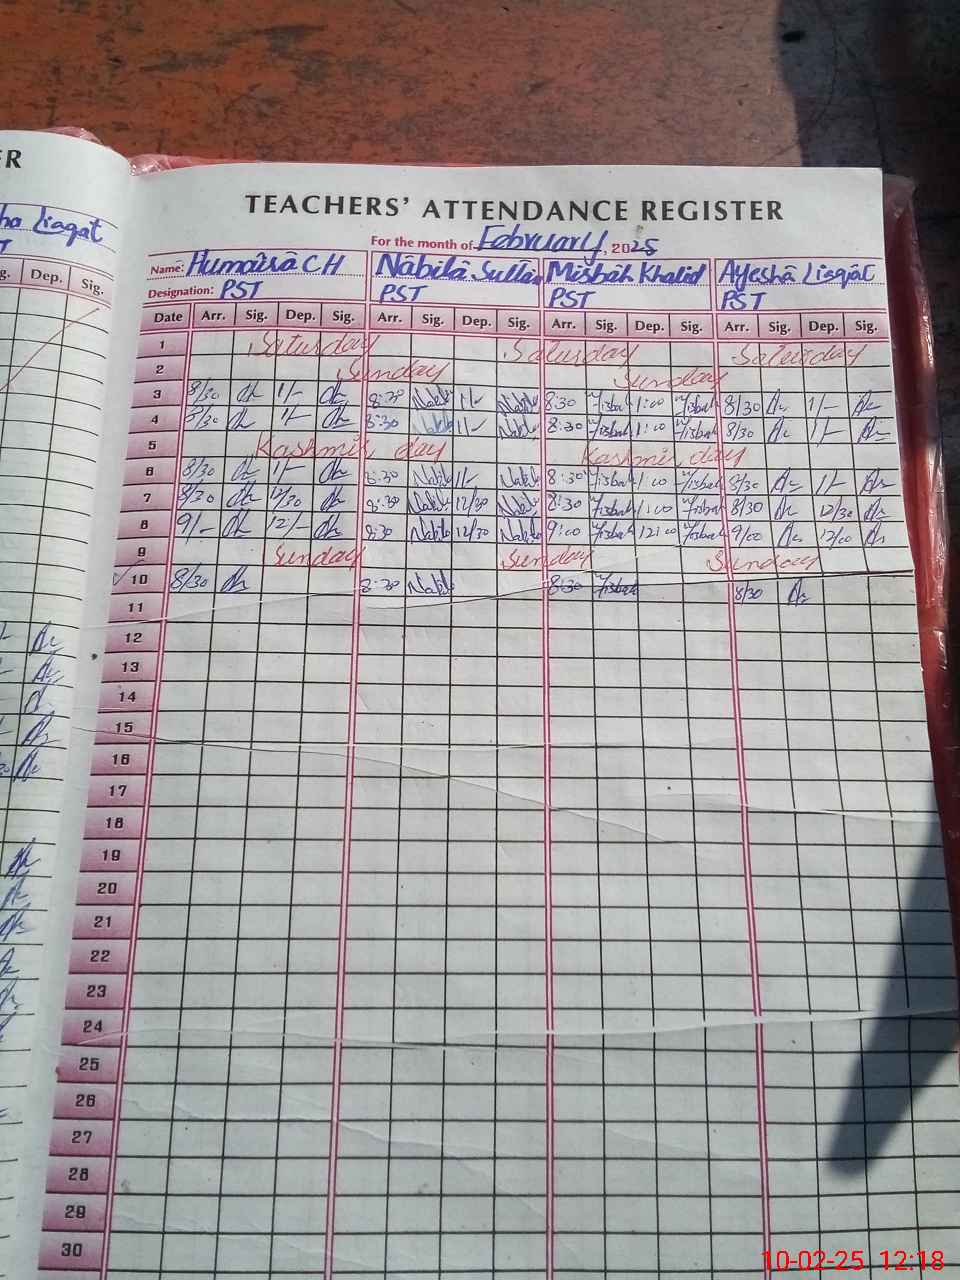 ER
TEACHERS' ATTENDANCE REGISTER
Liaqat
For the month of February, 2025
Name: Humaira CH Nabila Sultan Misbah Khalid Ayesha Liaqat
Designation: PST PST PST PST
Dep. Sig.
Date Arr. Sig. Dep. Sig. Arr. Sig. Dep. Sig. Arr. Sig. Dep. Sig. Arr. Sig. Dep. Sig.
1 Saturday Saturday Saturday
2 Sunday Sunday
3 8/30 1/- 8:30 Nabila 1/- Nabila 8:30 Misbah 1:00 Misbah 8/30 1/-
4 8/30 1/- 8:30 Nabila 1/- Nabila 8:30 Misbah 1:00 Misbah 8/30 1/-
5 Kashmir day Kashmir day
6 8/30 1/- 8:30 Nabila 1/- Nabila 8:30 Misbah 1:00 Misbah 8/30 1/-
7 8/30 12/30 8:30 Nabila 12/30 Nabila 8:30 Misbah 1:00 Misbah 8/30 12/30
8 9/- 12/- 8:30 Nabila 12/30 Nabila 9:00 Misbah 12:00 Misbah 9/00 12/00
9 Sunday Sunday Sunday
10 8/30 8:30 Nabila 8:30 Misbah 8/30
11
12
13
14
15
16
17
18
19
20
21
22
23
24
25
26
27
28
29
30
10-02-25 12:18